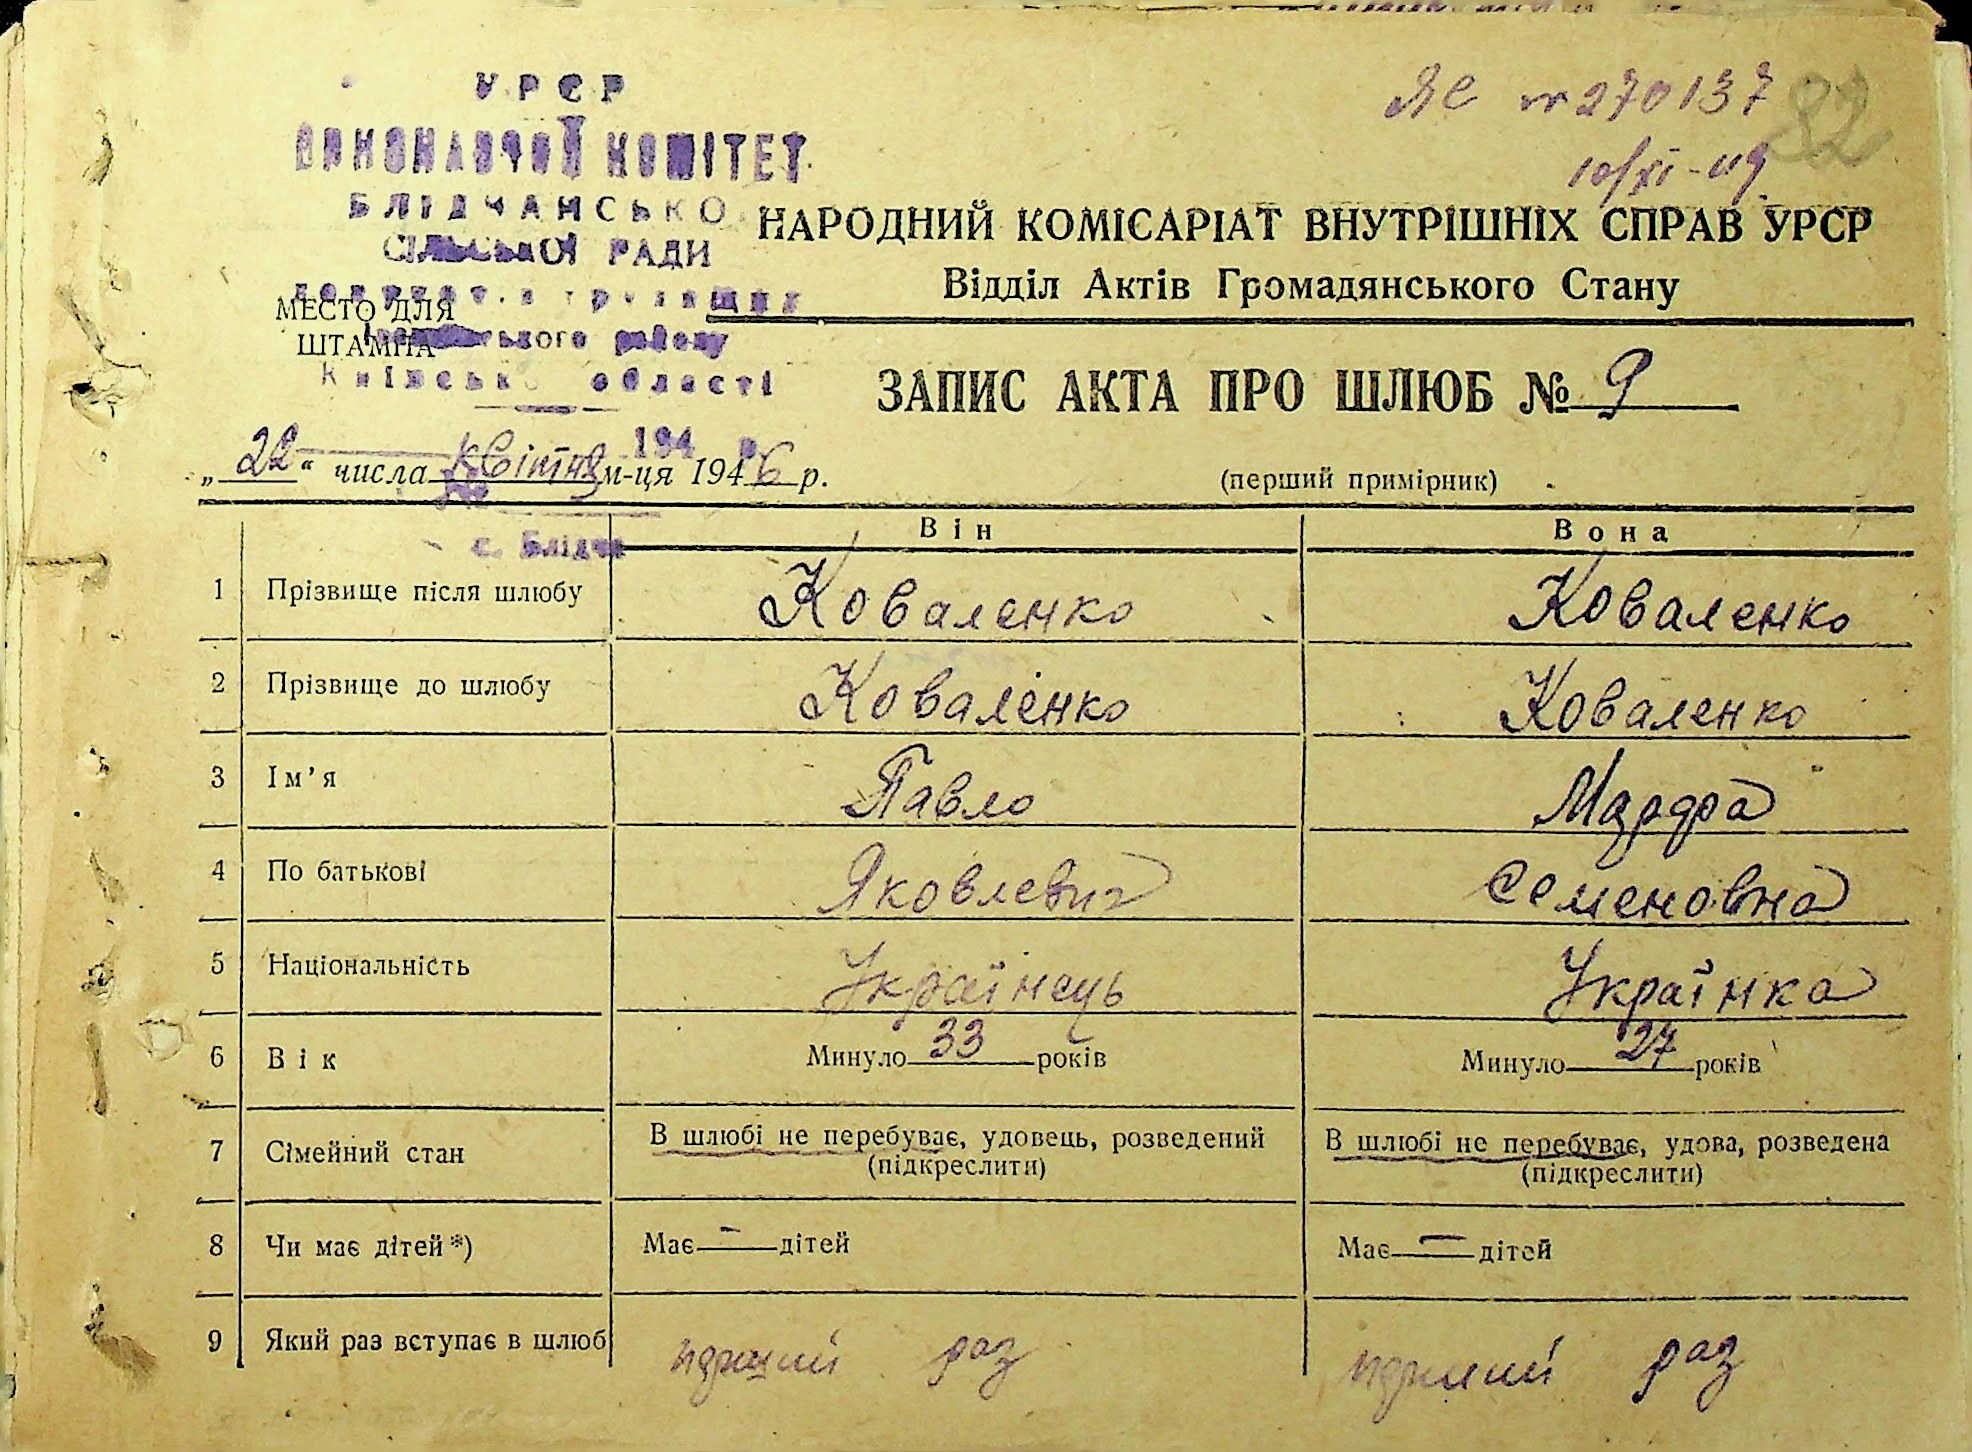 УРСР
ВИКОНАВЧОЙ КОМІТЕТ
БЛІДЧАНСЬКО
СІЛЬСЬКОЇ РАДИ
МЕСТО ДЛЯ
ШТАМПА
району
Київсько області
194 р.
с. Блідча
ЯС № 270137
82
10/XI-49
НАРОДНИЙ КОМІСАРІАТ ВНУТРІШНІХ СПРАВ УРСР
Відділ Актів Громадянського Стану
ЗАПИС АКТА ПРО ШЛЮБ № 9
„22“ числа квітня м-ця 1946 р.
(перший примірник)
Він Вона
1 Прізвище після шлюбу Коваленко Коваленко
2 Прізвище до шлюбу Коваленко Коваленко
3 Ім'я Павло Марфа
4 По батькові Яковлевич Семеновна
5 Національність Українець Українка
6 Вік Минуло 33 років Минуло 27 років
7 Сімейний стан В шлюбі не перебуває, удовець, розведений В шлюбі не перебуває, удова, розведена
(підкреслити) (підкреслити)
8 Чи має дітей*) Має — дітей Має — дітей
9 Який раз вступає в шлюб перший раз перший раз